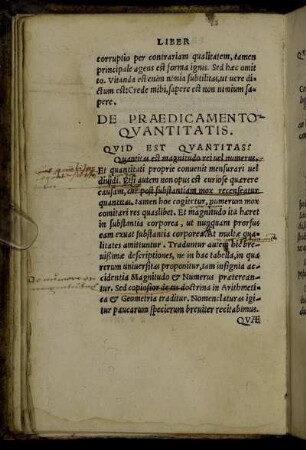 LIBER
corruptio per contrariam qualitatem, tamen
principale agens est forma ignis. Sed hæc omit
to. Vitanda est enim nimia subtilitas, ut vere di
ctum est: Crede mihi, sapere est non nimium sa
pere.
DE PRAEDICAMENTO
QVANTITATIS.
QVID EST QVANTITAS?
Quantitas est magnitudo rei uel numerus.
Et quantitati proprie conuenit mensurari uel
diuidi. Etsi autem non opus est curiose quærere
causam, cur post substantiam mox recenseatur
quantitas, tamen hoc cogitetur, numerum mox
comitari res quaslibet. Et magnitudo ita hæret
in substantia corporea, ut nunquam prorsus
eam exuat substantia corporea. At multæ qua
litates amittuntur. Traduntur autem hic bre
uissimæ descriptiones, ne in hac tabella, in qua
rerum uniuersitas proponitur, tam insignia ac
cidentia Magnitudo & Numerus prætereantur.
Sed copiosior de eis doctrina in Arithmeti
ca & Geometria traditur. Nomenclaturas igi
tur paucarum specierum breuiter recitabimus.
QVÆ